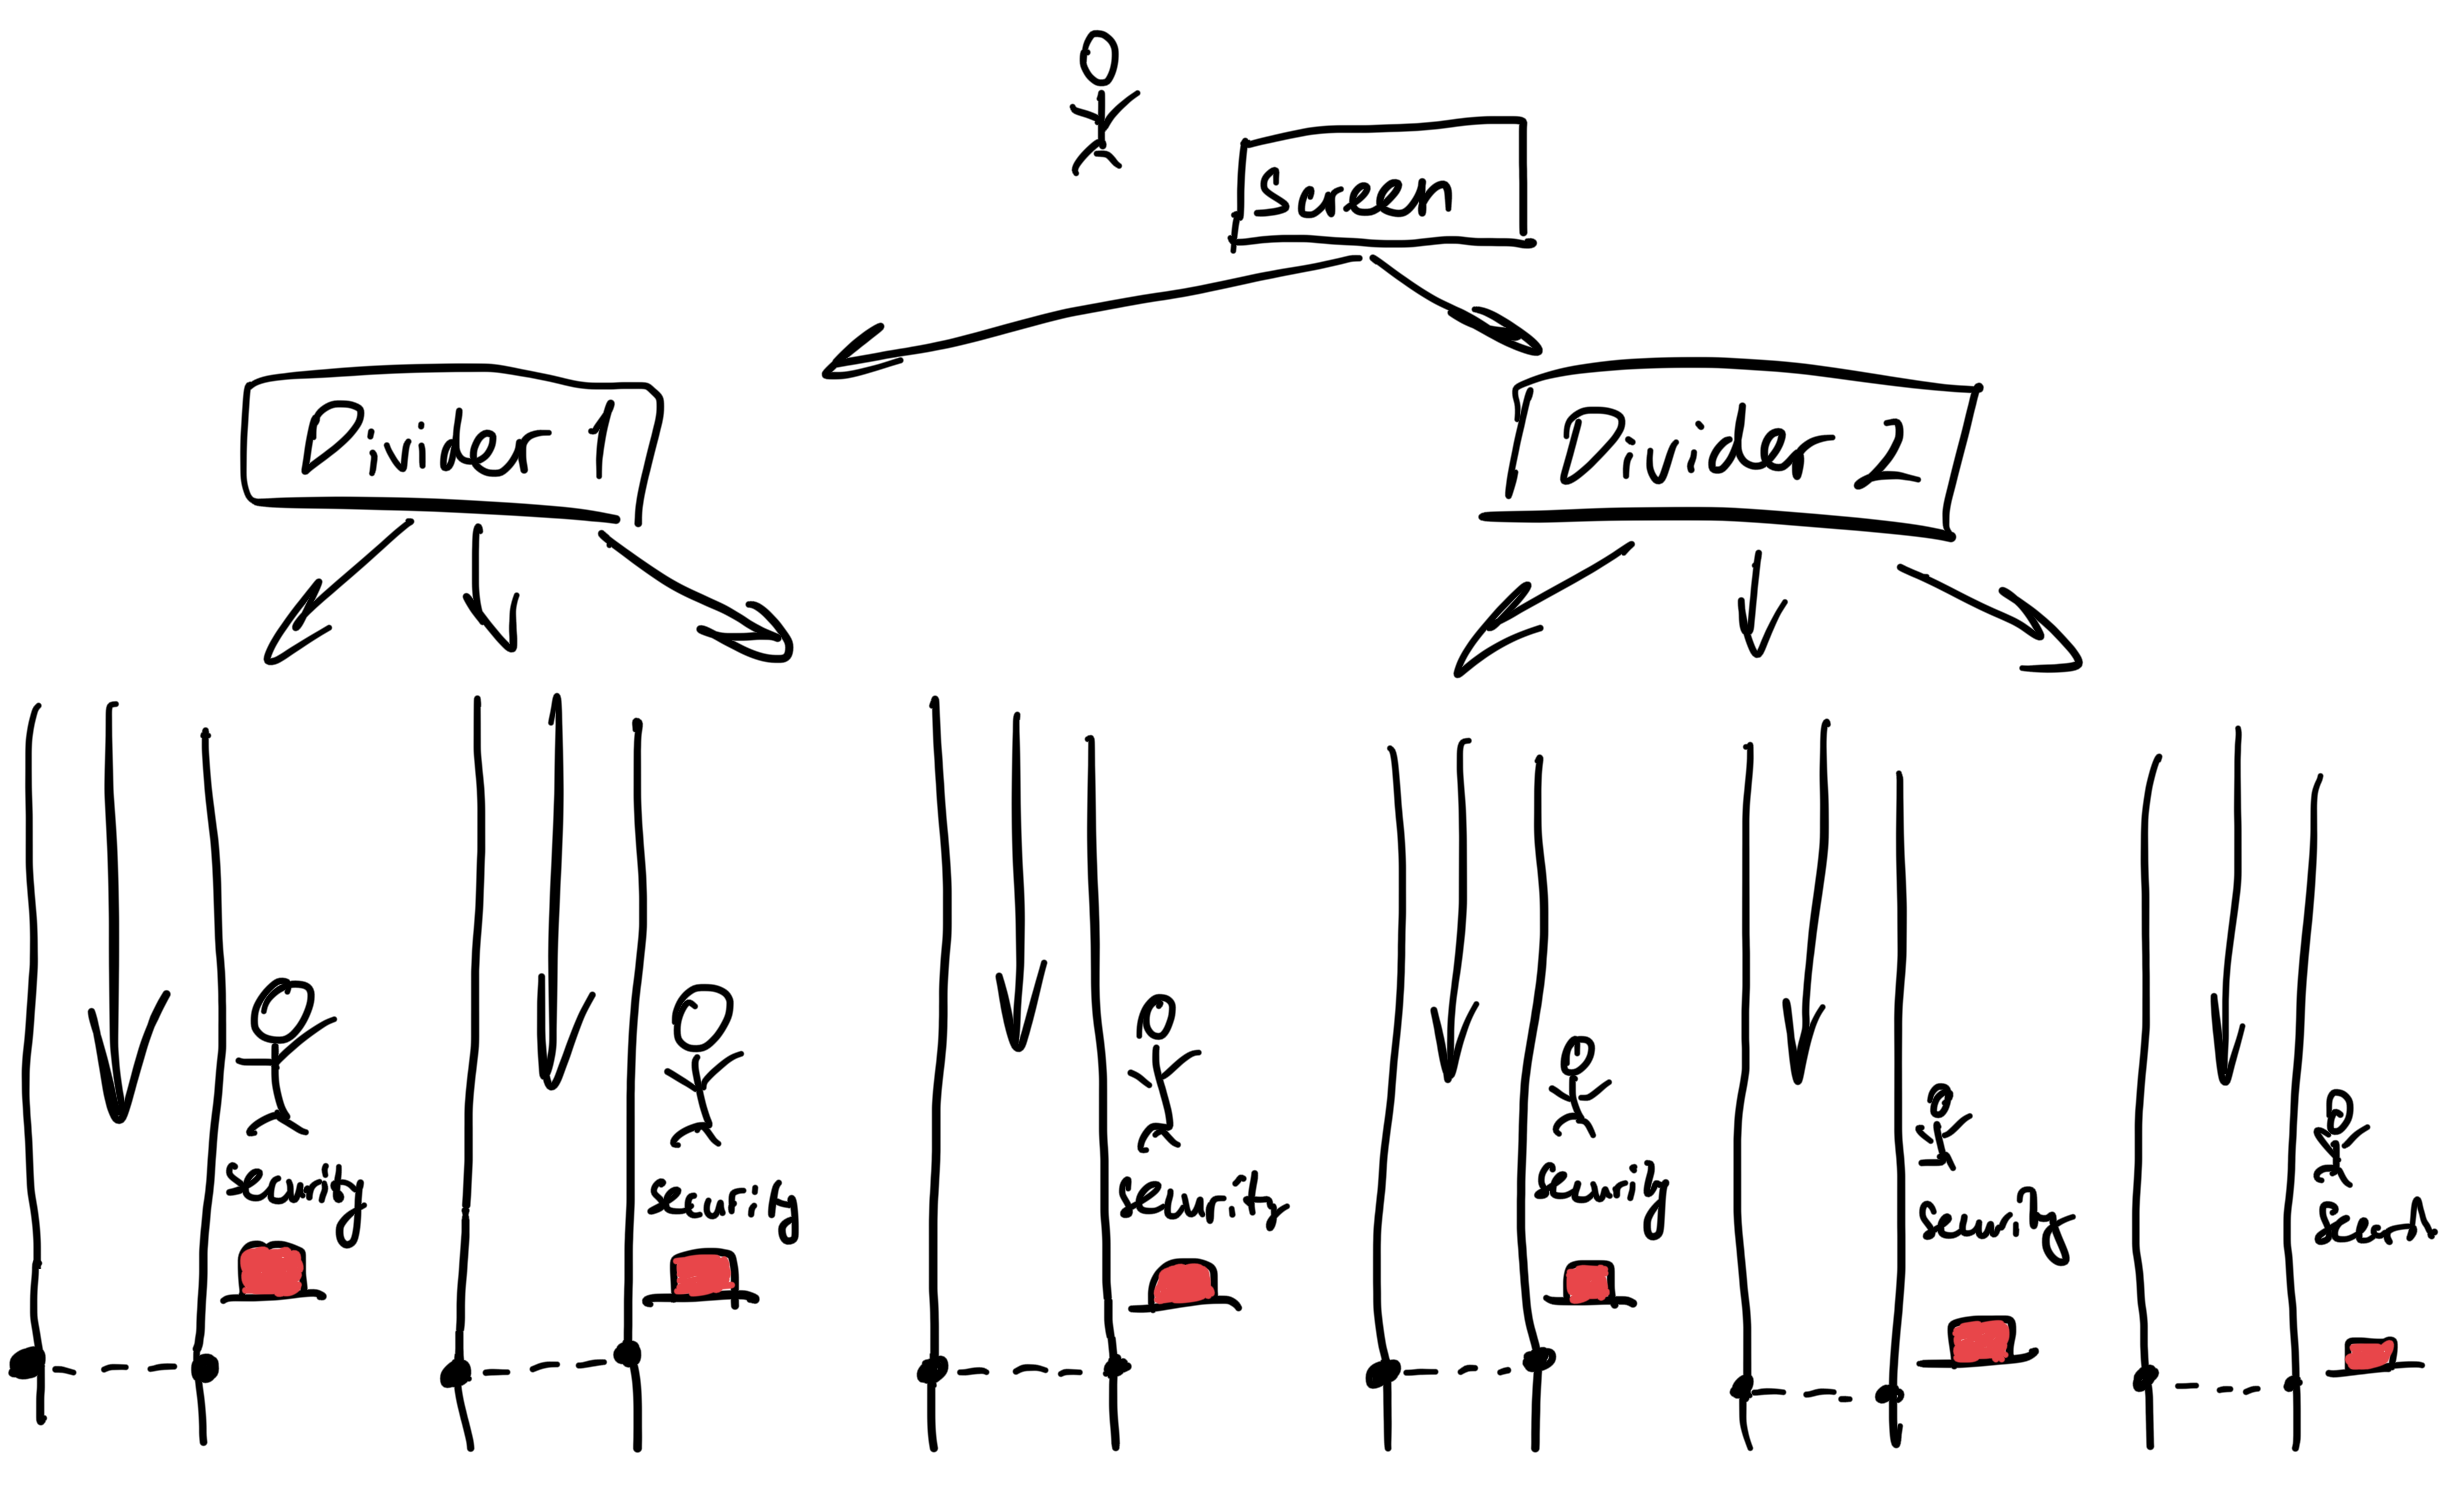 Screen
Divider 1
Divider 2
security
security
security
security
security